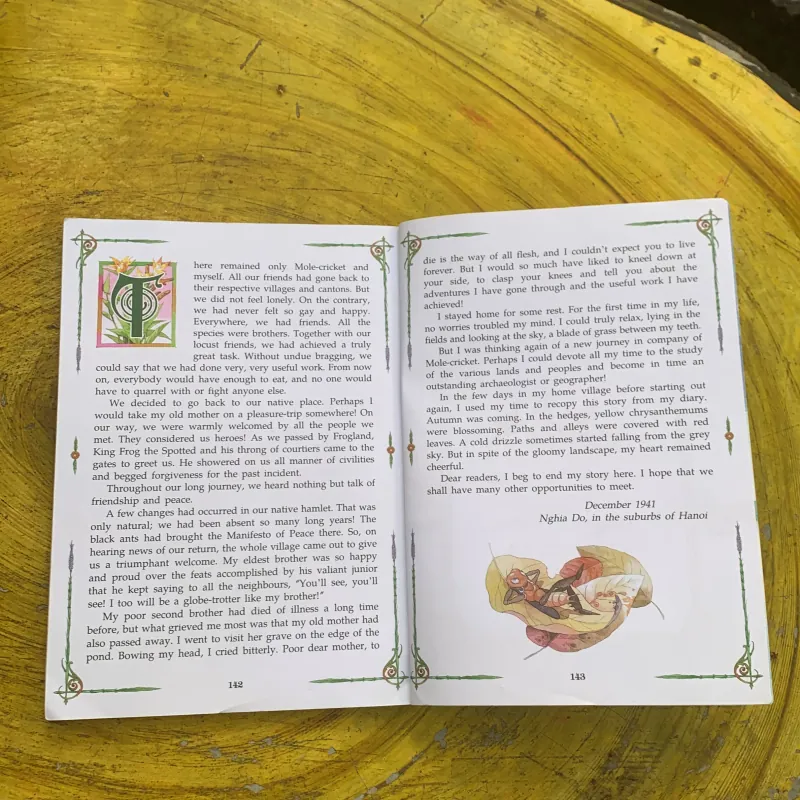 There remained only Mole-cricket and
myself. All our friends had gone back to
their respective villages and cantons. But
we did not feel lonely. On the contrary,
we had never felt so gay and happy.
Everywhere, we had friends. All the
species were brothers. Together with our
locust friends, we had achieved a truly
great task. Without undue bragging, we
could say that we had done very, very useful work. From now
on, everybody would have enough to eat, and no one would
have to quarrel with or fight anyone else.
We decided to go back to our native place. Perhaps I
would take my old mother on a pleasure-trip somewhere! On
our way, we were warmly welcomed by all the people we
met. They considered us heroes! As we passed by Frogland,
King Frog the Spotted and his throng of courtiers came to the
gates to greet us. He showered on us all manner of civilities
and begged forgiveness for the past incident.
Throughout our long journey, we heard nothing but talk of
friendship and peace.
A few changes had occurred in our native hamlet. That was
only natural; we had been absent so many long years! The
black ants had brought the Manifesto of Peace there. So, on
hearing news of our return, the whole village came out to give
us a triumphant welcome. My eldest brother was so happy
and proud over the feats accomplished by his valiant junior
that he kept saying to all the neighbours, "You'll see, you'll
see! I too will be a globe-trotter like my brother!"
My poor second brother had died of illness a long time
before, but what grieved me most was that my old mother had
also passed away. I went to visit her grave on the edge of the
pond. Bowing my head, I cried bitterly. Poor dear mother, to
142
die is the way of all flesh, and I couldn't expect you to live
forever. But I would so much have liked to kneel down at
your side, to clasp your knees and tell you about the
adventures I have gone through and the useful work I have
achieved!
I stayed home for some rest. For the first time in my life,
no worries troubled my mind. I could truly relax, lying in the
fields and looking at the sky, a blade of grass between my teeth.
But I was thinking again of a new journey in company of
Mole-cricket. Perhaps I could devote all my time to the study
of the various lands and peoples and become in time an
outstanding archaeologist or geographer!
In the few days in my home village before starting out
again, I used my time to recopy this story from my diary.
Autumn was coming. In the hedges, yellow chrysanthemums
were blossoming. Paths and alleys were covered with red
leaves. A cold drizzle sometimes started falling from the grey
sky. But in spite of the gloomy landscape, my heart remained
cheerful.
Dear readers, I beg to end my story here. I hope that we
shall have many other opportunities to meet.
December 1941
Nghia Do, in the suburbs of Hanoi
143